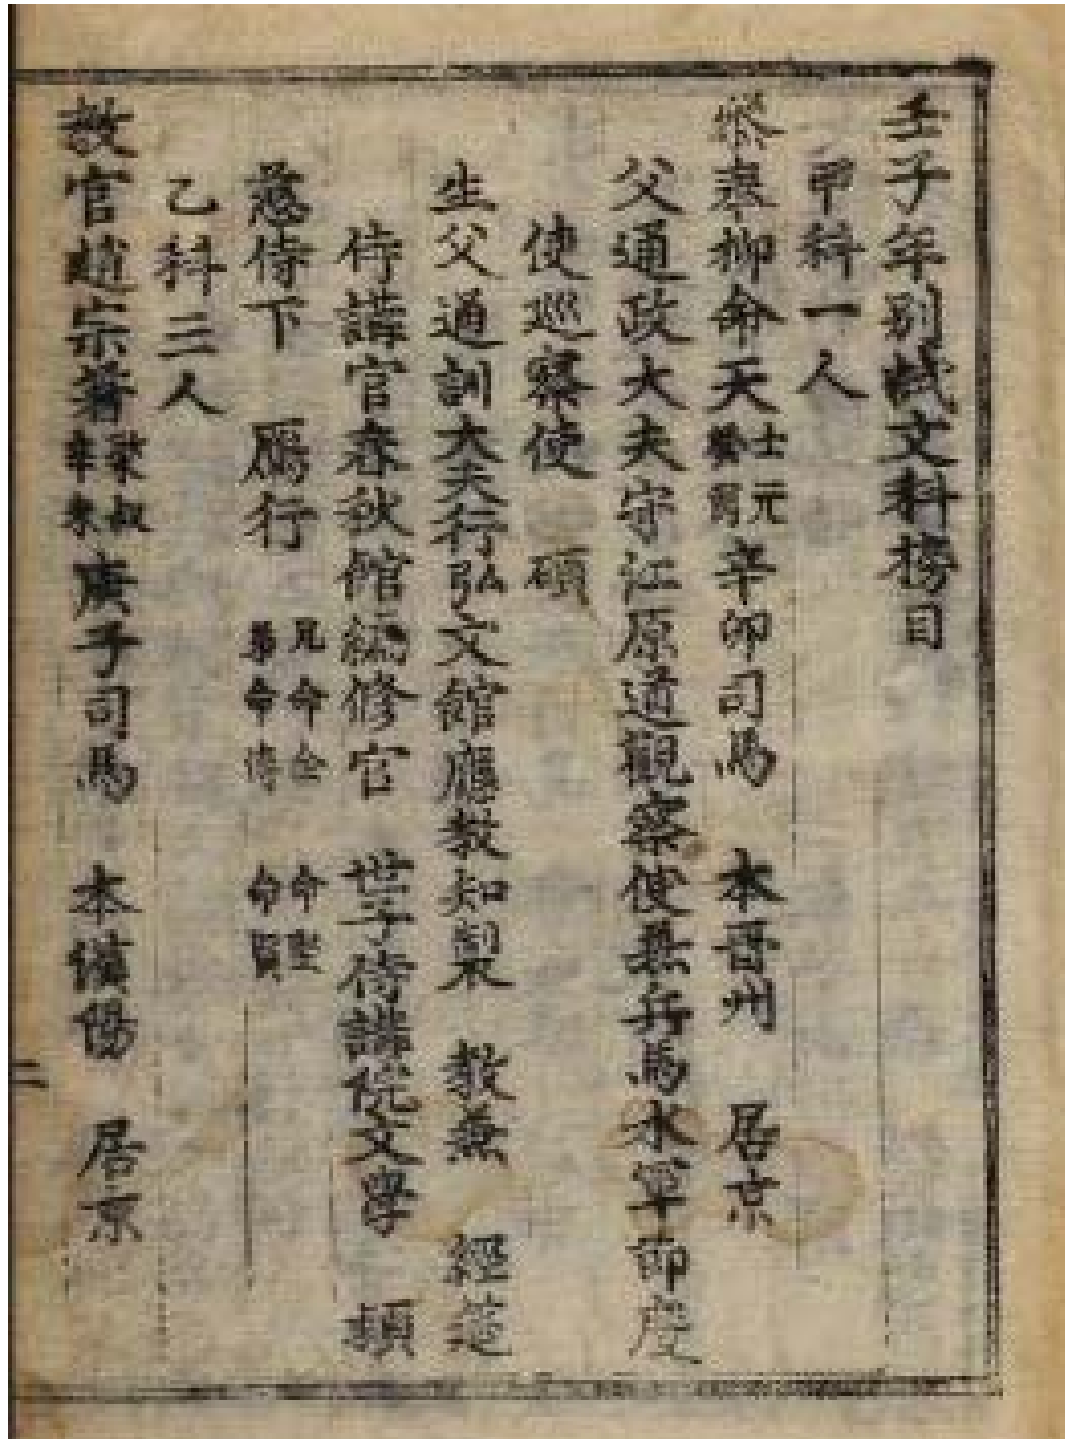 壬子年別試文科榜目
甲科一人
參奉柳命天士元癸酉辛卯司馬 本晋州 居京
父通政大夫守江原道觀察使兼兵馬水軍節度
使巡察使 碩
生父通訓大夫行弘文館應教知製 教兼 經筵
侍講官春秋館編修官 世子侍講院文學 頴
慈侍下 鴈行 兄命全 弟命 命堅 命賢
乙科三人
教官趙宗著 叔辛未庚子司馬 本漢陽 居京
二